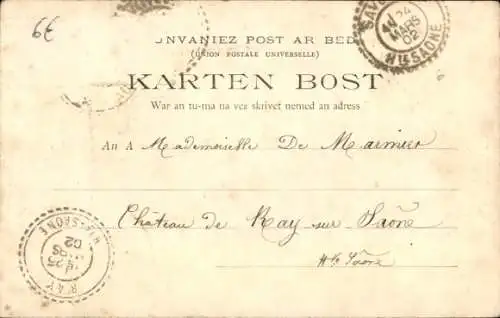 99
UNVANIEZ POST AR BED
(UNION POSTALE UNIVERSELLE)
KARTEN BOST
War an tu-ma na vez skrivet nemed an adress
An A Mademoiselle De Marmier
Château de Ray sur Saône
Hte Saône
SAV
24
MARS
02
Hte SAONE
RAY
25
MARS
02
Hte SAONE